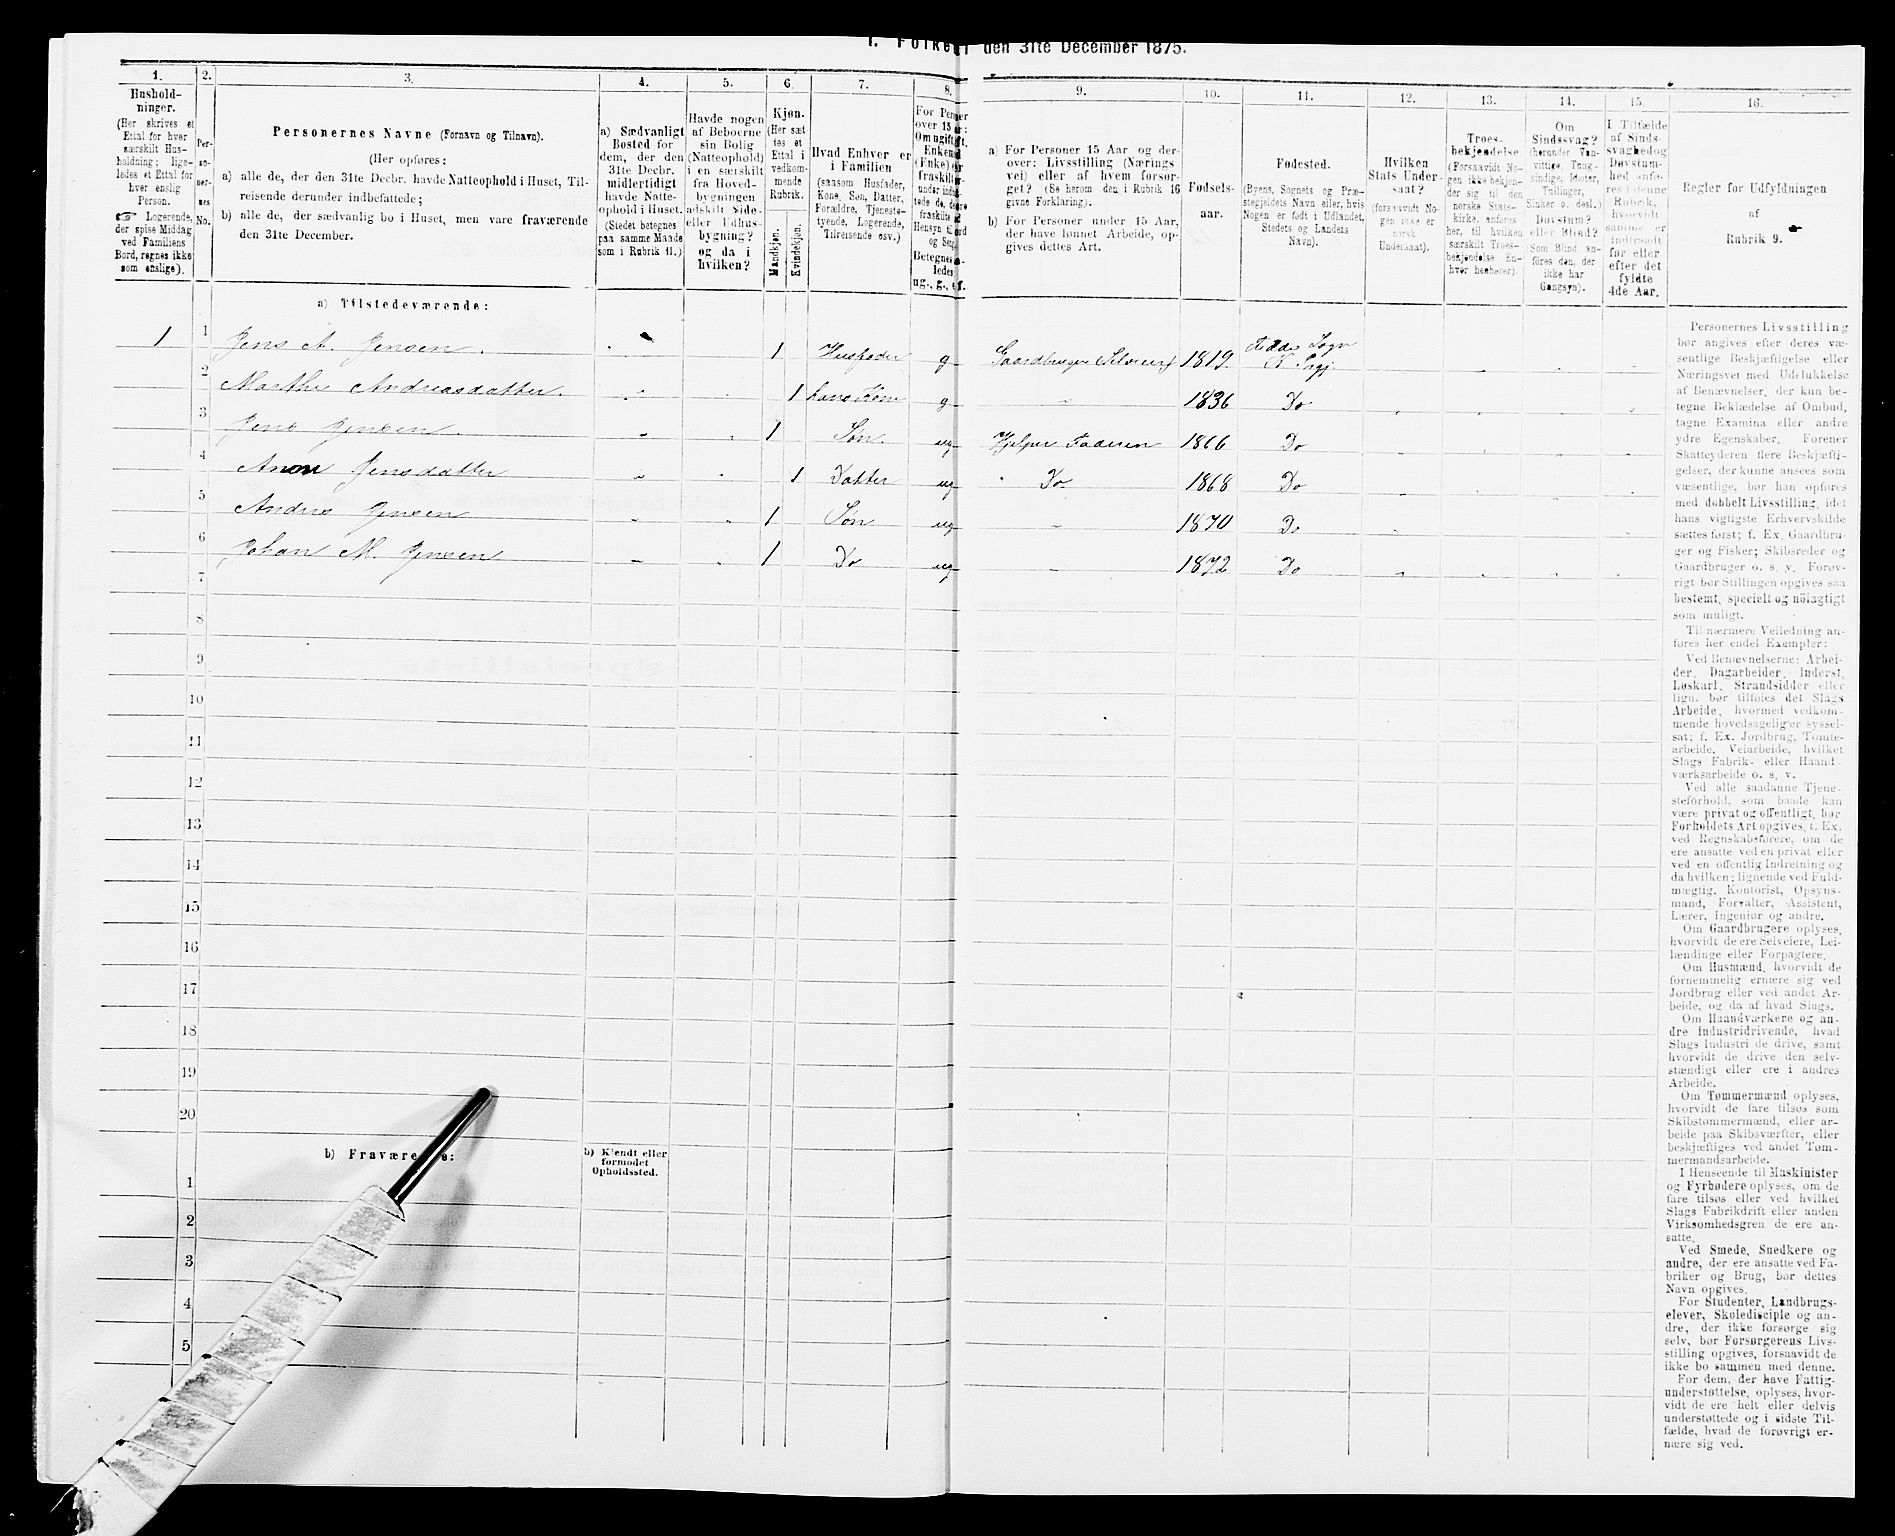 I. Folket den 31te December 1875.
1.
Hushold-
ninger.
(Her skrives et
Ettal for hver
særskilt Hus-
holdning; lige-
ledes et Ettal for
hver enslig
Person.
☞ Logerende,
der spise Middag
ved Familiens
Bord, regnes ikke
som enslige).
2.
Per-
so-
ner-
nes
No.
3.
Personernes Navne (Fornavn og Tilnavn).
(Her opføres:
a) alle de, der den 31te Decbr. havde Natteophold i Huset, Til-
reisende derunder indbefattede;
b) alle de, der sædvanlig bo i Huset, men vare fraværende
den 31te December.
4.
a) Sædvanligt
Bosted for
dem, der den
31te Decbr.
midlertidigt
havde Natte-
ophold i Huset.
(Stedet betegnes
paa samme Maade
som i Rubrik 11.)
5.
Havde nogen
af Beboerne
sin Bolig
(Natteophold)
i en særskilt
fra Hoved-
bygningen
adskilt Side-
eller Udhus-
bygning?
og da i
hvilken?
6.
Kjøn.
(Her sæt-
tes et
Ettal i
vedkom-
mende
Rubrik.
Mandkjøn.
Kvindekjøn.
7.
Hvad Enhver er
i Familien
(saasom Husfader,
Kone, Søn, Datter,
Forældre, Tjeneste-
tyende, Logerende,
Tilreisende osv.)
8.
For Personer
over 15 Aar:
Om ugift, gift,
Enkemand
(Enke) eller
fraskilt
Betegnes
ledes
ug., g., e., f.
9.
a) For Personer 15 Aar og der-
over: Livsstilling (Nærings-
vei) eller af hvem forsør-
get? (Se herom den i Rubrik 16
givne Forklaring).
b) For Personer under 15 Aar,
der have lønnet Arbeide, op-
gives dettes Art.
10.
Fødsels-
aar.
11.
Fødested.
(Byens, Sognets og Præ-
stegjeldets Navn eller, hvis
Nogen er født i Udlandet,
Stedets og Landets
Navn).
12.
Hvilken
Stats Under-
saat?
(forsaavidt No-
gen ikke er
norsk
Undersaat).
13.
Troes-
bekjendelse.
(Forsaavidt No-
gen ikke bekjen-
der sig til den
norske Stats-
kirke, anføres
her, til hvilken
særskilt Troes-
bekjendelse En-
hver henhører).
14.
Om
Sindssvag?
(herunder Van-
vittige, Tung-
sindige, Idioter,
Tullinger,
Sinker o. desl.)
Døvstum?
eller Blind?
(Som Blind an-
føres den, der
ikke har
Gangsyn).
15.
I Tilfælde
af Sinds-
svaghed og
Døvstum-
hed anfø-
res i denne
Rubrik,
hvorvidt
samme er
indtraadt
før eller
efter det
fyldte
4de Aar.
16.
Regler for Udfyldningen
af
Rubrik 9.
a) Tilstedeværende:
1 1 Jens A. Jensen. 1 Husfader g Gaardbruger Selveier 1819. Sogn
2 Marthe Andreasdatter. 1 hans Kone g 1836 Do
3 Jens Jensen. 1 Søn. ug Hjelper Faderen 1866 Do
4 Anne Jensdatter 1 Datter ug Do 1868 Do
5 Anders Jensen 1 Søn ug 1870 Do
6 Johan M. Jensen 1 Do ug 1872 Do
7
8
9
10
11
12
13
14
15
16
17
18
19
20
b) Fraværende:
b) Kjendt eller
formodet
Opholdssted.
1
2
3
4
5
Personernes Livsstilling
bør angives efter deres væ-
sentlige Beskjæftigelse eller
Næringsvei med Udelukkelse
af Benævnelser, der kun be-
tegne Beklædelse af Ombud,
tagne Examina eller andre
ydre Egenskaber. Forener
Skatteyderen flere Beskjæfti-
gelser, der kunne ansees som
væsentlige, bør han opføres
med dobbelt Livsstilling, idet
hans vigtigste Erhvervskilde
sættes først; f. Ex. Gaardbru-
ger og Fisker; Skibsreder og
Gaardbruger o. s. v. Forøv-
rigt bør Stillingen opgives saa
bestemt, specielt og nöiagtigt
som muligt.
Til nærmere Veiledning an-
føres her endel Exempler:
Ved Benævnelserne: Arbei-
der, Dagarbeider, Inderst,
Løskarl, Strandsidder eller
lign. bør tilføies det Slags
Arbeide, hvormed vedkom-
mende hovedsagelig er syssel-
sat; f. Ex. Jordbrug, Tomte-
arbeide, Veiarbeide, hvilket
Slags Fabrik- eller Haand-
værksarbeide o. s. v.
Ved alle saadanne Tjene-
steforhold, som baade kan
være privat og offentligt, bør
Forholdets Art opgives, t. Ex.
ved Regnskabsførere, om de
ere ansatte ved en privat eller
ved en offentlig Indretning og
da hvilken; lignende ved Fuld-
mægtig, Kontorist, Opsyns-
mand, Forvalter, Assistent,
Lærer, Ingeniør og andre.
Om Gaardbrugere oplyses,
hvorvidt de ere Selveiere, Lei-
lændinge eller Forpagtere.
Om Husmænd, hvorvidt de
fornemmelig ernære sig ved
Jordbrug eller ved andet Ar-
beide, og da af hvad Slags.
Om Haandværkere og an-
dre Industridrivende, hvad
Slags Industri de drive, samt
hvorvidt de drive den selv-
stændigt eller ere i andres
Arbeide.
Om Tømmermænd oplyses,
hvorvidt de fare tilsøs som
Skibstømmermænd, eller ar-
beide paa Skibsværfter, eller
beskjæftiges ved andet Tøm-
mermandsarbeide.
I Henseende til Maskinister
og Fyrbødere oplyses, om de
fare tilsøs eller ved hvilket
Slags Fabrikdrift eller anden
Virksomhedsgren de ere an-
satte.
Ved Smede, Snedkere og
andre, der ere ansatte ved Fa-
briker og Brug, bør dettes
Navn opgives.
For Studenter, Landbrugs-
elever, Skoledisciple og an-
dre, der ikke forsørge sig
selv, bør Forsørgerens Livs-
stilling opgives, forsaavidt de
ikke bo sammen med denne.
For dem, der have Fattig-
understøttelse, oplyses, hvor-
vidt de ere helt eller delvis
understøttede og i sidste Til-
fælde, hvad de forøvrigt er-
nære sig ved.